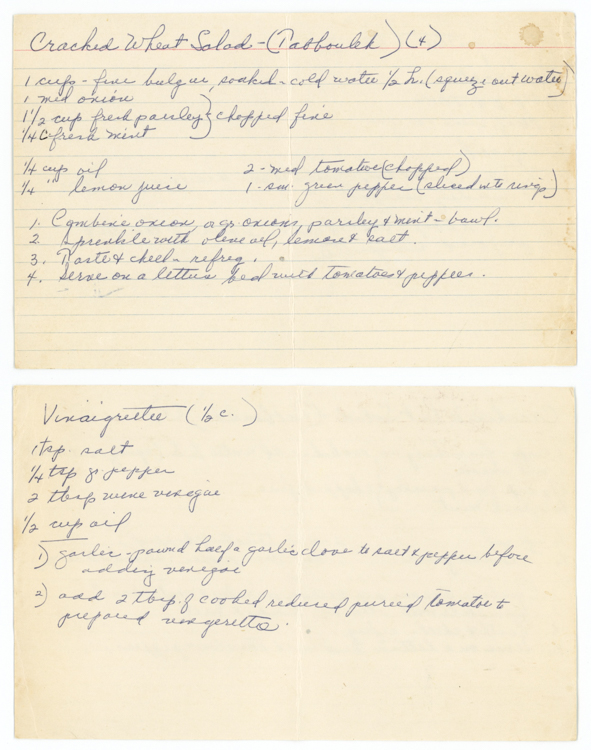 Cracked Wheat Salad - (Tabbouleh) (4)
1 cups - fine bulgar, soaked - cold water 1/2 h. (squeeze out water)
1 med onion
1 1/2 cup fresh parsley } chopped fine
1/4 C fresh mint
1/4 cup oil 2 - med tomatoe (chopped)
1/4 " lemon juice 1 - sm. green pepper (sliced into rings)
1. Combine onion, gr. onions, parsley & mint - bowl.
2. Sprinkle with olive oil, lemon & salt.
3. Taste & chell - refreg.
4. Serve on a lettus bed with tomatoes & peppers.
Vinaigrettee (1/2 c.)
1 tsp. salt
1/4 tsp gr pepper
2 tbsp wine vinegar
1/2 cup oil
1) garlic - pound half a garlic clove to salt & pepper before
adding vinegar
2) add 2 tbsp. of cooked reduced puried tomatoe to
prepared vingerette.